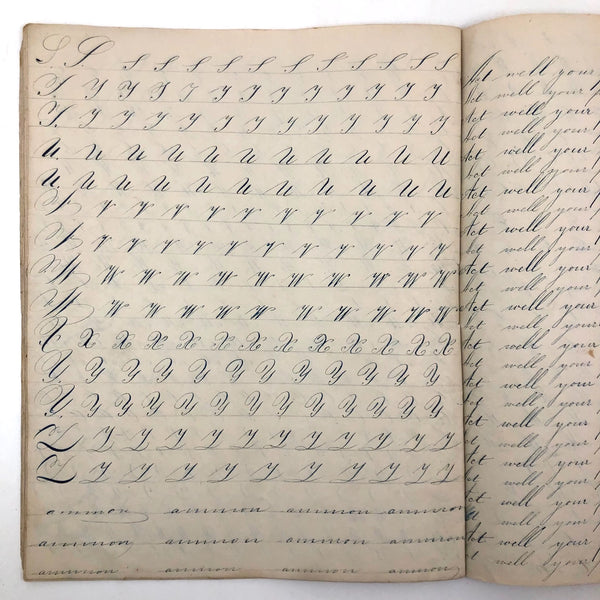 S. S S S S S S S S S S S S
T. T T T T T T T T T T T T
T. T T T T T T T T T T T T
U. U U U U U U U U U U
U. U U U U U U U U U U
V. V V V V V V V V V V
V. V V V V V V V V V V
W. W W W W W W W W W
W. W W W W W W W W W
X. X X X X X X X X X X X X
Y. Y Y Y Y Y Y Y Y Y Y Y
Y. Y Y Y Y Y Y Y Y Y Y Y Y
Z. Z Z Z Z Z Z Z Z Z Z Z
Z. Z Z Z Z Z Z Z Z Z Z
ammron ammron ammron ammron
ammron ammron ammron ammron
ammron ammron ammron ammron
Act well your
Act well your
Act well your
Act well your
Act well your
Act well your
Act well your
Act well your
Act well your
Act well your
Act well your
Act well your
Act well your
Act well your
Act well your
Act well your
Act well your
Act well your
Act well your
Act well your
Act well your
Act well your
Act well your
Act well your
Act well your
Act well your